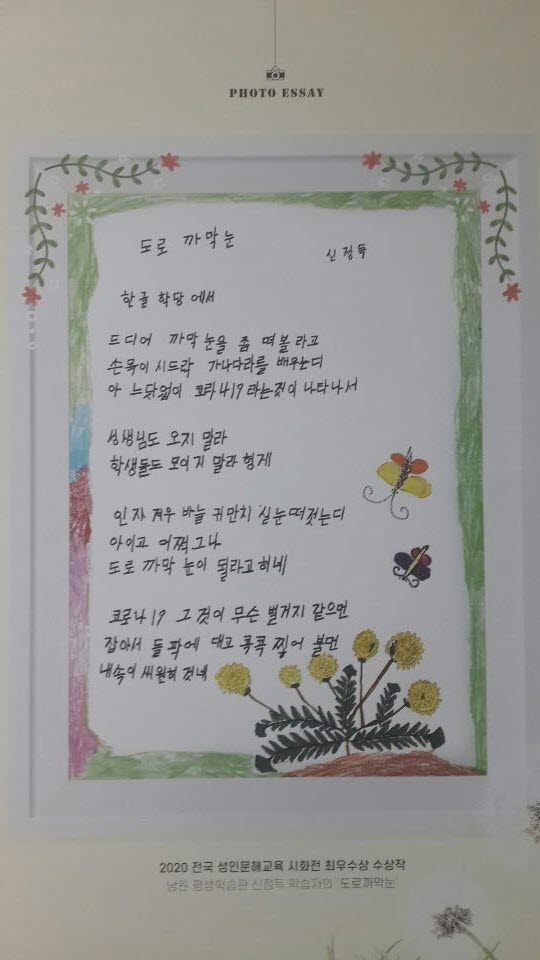 PHOTO ESSAY
도로 까막눈
신정득
한글 학당에서
드디어 까막눈을 좀 떠볼라고
손목이 시드락 가나다라를 배우는디
아 느닷없이 코라나19 라는것이 나타나서
선생님도 오지 말라
학생들도 모이지 말라 헝게
인자 겨우 바늘 귀만치 실눈 떠것는디
아이고 어쩌그나
도로 까막 눈이 될라고 허네
코로나19 그것이 무슨 벌거지 같으면
잡아서 돌팍에 대고 콕콕 찧어 불면
내속이 씨원허 것네
2020 전국 성인문해교육 시화전 최우수상 수상작
남원 평생학습관 신정득 학습자의 '도로까막눈'